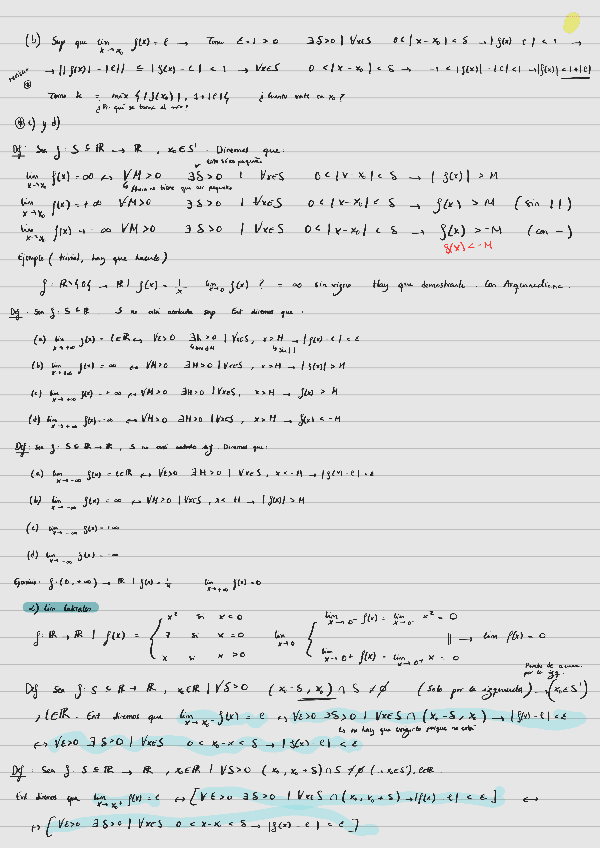 (b) Sup que lim x→x₀ f(x) = l → Tomo ε=1>0 ∃δ>0 | ∀x∈S 0<|x-x₀|<δ → |f(x)-l|<1 →
→ ||f(x)|-|l|| ≤ |f(x)-l|<1 → ∀x∈S 0<|x-x₀|<δ → -1<|f(x)|-|l|<1 → |f(x)|<1+|l|
Tomo k = máx {|f(x₀)|, 1+|l|} ¿Cuánto vale en x₀?
¿Por qué se toma el máx?
⊛ c) y d)
Def: Sea f: S⊆ℝ → ℝ, x₀∈S'. Diremos que:
lim x→x₀ f(x)=∞ ↔ ∀M>0 ∃δ>0 | ∀x∈S 0<|x-x₀|<δ → |f(x)|>M
lim x→x₀ f(x)=+∞ ↔ ∀M>0 ∃δ>0 | ∀x∈S 0<|x-x₀|<δ → f(x)>M (sin ||)
lim x→x₀ f(x)=-∞ ∀M>0 ∃δ>0 | ∀x∈S 0<|x-x₀|<δ → f(x)>-M (con -)
f(x)<-M
Ejemplo (trivial, hay que hacerlo)
f: ℝ\{0} → ℝ | f(x)=1/x lim x→0 f(x)? = ∞ sin signo Hay que demostrarlo. Con Arquimediana.
Def: Sea f: S⊆ℝ S no está acotado sup Ent diremos que:
(a) lim x→+∞ f(x)=l∈ℝ ↔ ∀ε>0 ∃M>0 | ∀x∈S, x>M → |f(x)-l|<ε
(b) lim x→+∞ f(x)=∞ ↔ ∀M>0 ∃H>0 | ∀x∈S, x>H → |f(x)|>M
(c) lim x→+∞ f(x)=+∞ ↔ ∀M>0 ∃H>0 | ∀x∈S, x>H → f(x)>M
(d) lim x→+∞ f(x)=-∞ ↔ ∀M>0 ∃H>0 | ∀x∈S, x>H → f(x)<-M
Def: Sea f: S⊆ℝ → ℝ, S no está acotado inf. Diremos que:
(a) lim x→-∞ f(x)=l∈ℝ ↔ ∀ε>0 ∃M>0 | ∀x∈S, x<-M → |f(x)-l|<ε
(b) lim x→-∞ f(x)=∞ ↔ ∀M>0 ∃H>0 | ∀x∈S, x<-H → |f(x)|>M
(c) lim x→-∞ f(x)=+∞
(d) lim x→-∞ f(x)=-∞
f: (0,+∞) → ℝ | f(x)=1/x lim x→+∞ f(x)=0
2) Lím laterales
f: ℝ → ℝ | f(x) = { x² si x<0
7 si x=0
x si x>0
lim x→0 { lim x→0⁻ f(x) = lim x→0⁻ x² = 0
lim x→0⁺ f(x) = lim x→0⁺ x = 0
→ lim f(x)=0
Def Sea f: S⊆ℝ → ℝ, x₀∈ℝ | ∀δ>0 (x₀-δ, x₀)∩S≠∅ (Solo por la izquierda). (x₀∈S')
, l∈ℝ. Ent diremos que lim x→x₀⁻ f(x)=l ↔ ∀ε>0 ∃δ>0 | ∀x∈S∩(x₀-δ, x₀) → |f(x)-l|<ε
↔ ∀ε>0 ∃δ>0 | ∀x∈S 0<x₀-x<δ → |f(x)-l|<ε
Def: Sea f: S⊆ℝ → ℝ, x₀∈ℝ | ∀δ>0 (x₀, x₀+δ)∩S≠∅ (→x₀∈S'), l∈ℝ.
Ent diremos que lim x→x₀⁺ f(x)=l ↔ [∀ε>0 ∃δ>0 | ∀x∈S∩(x₀, x₀+δ) → |f(x)-l|<ε] ↔
↔ [∀ε>0 ∃δ>0 | ∀x∈S 0<x-x₀<δ → |f(x)-l|<ε]